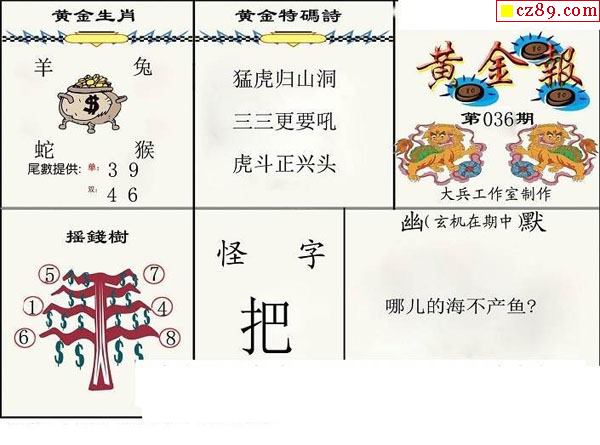 cz89.com
黄金生肖
羊 兔
$
蛇 猴
尾數提供: 单: 3 9
双: 4 6
黄金特碼詩
猛虎归山洞
三三更要吼
虎斗正兴头
黄金報
第036期
大兵工作室制作
摇錢樹
⑤ ⑦
① ④
⑥ ⑧
$ $ $ $ $ $ $ $
怪 字
把
幽(玄机在期中)默
哪儿的海不产鱼?